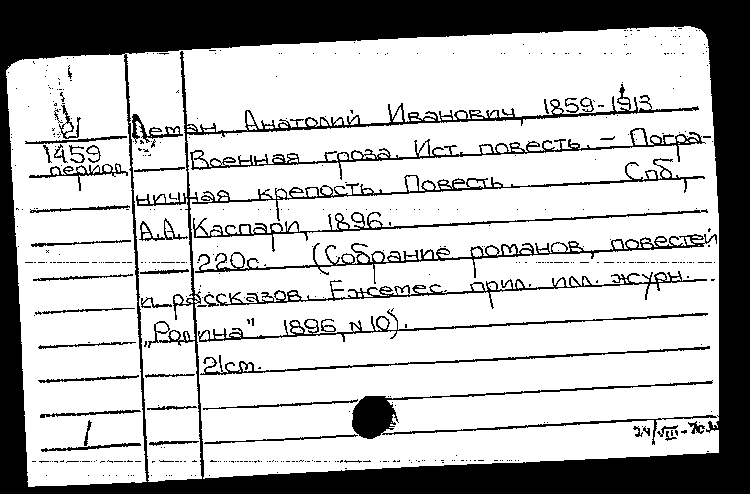 21
Леман, Анатолий Иванович, 1859-1913
1459
период.
Военная гроза. Ист. повесть. - Погра-
ничная крепость. Повесть. Спб.,
А.А. Каспари, 1896.
220с. (Собрание романов, повестей
и рассказов. Ежемес. прил. илл. журн.
„Родина". 1896, N 10).
21см.
1
24/VIII-